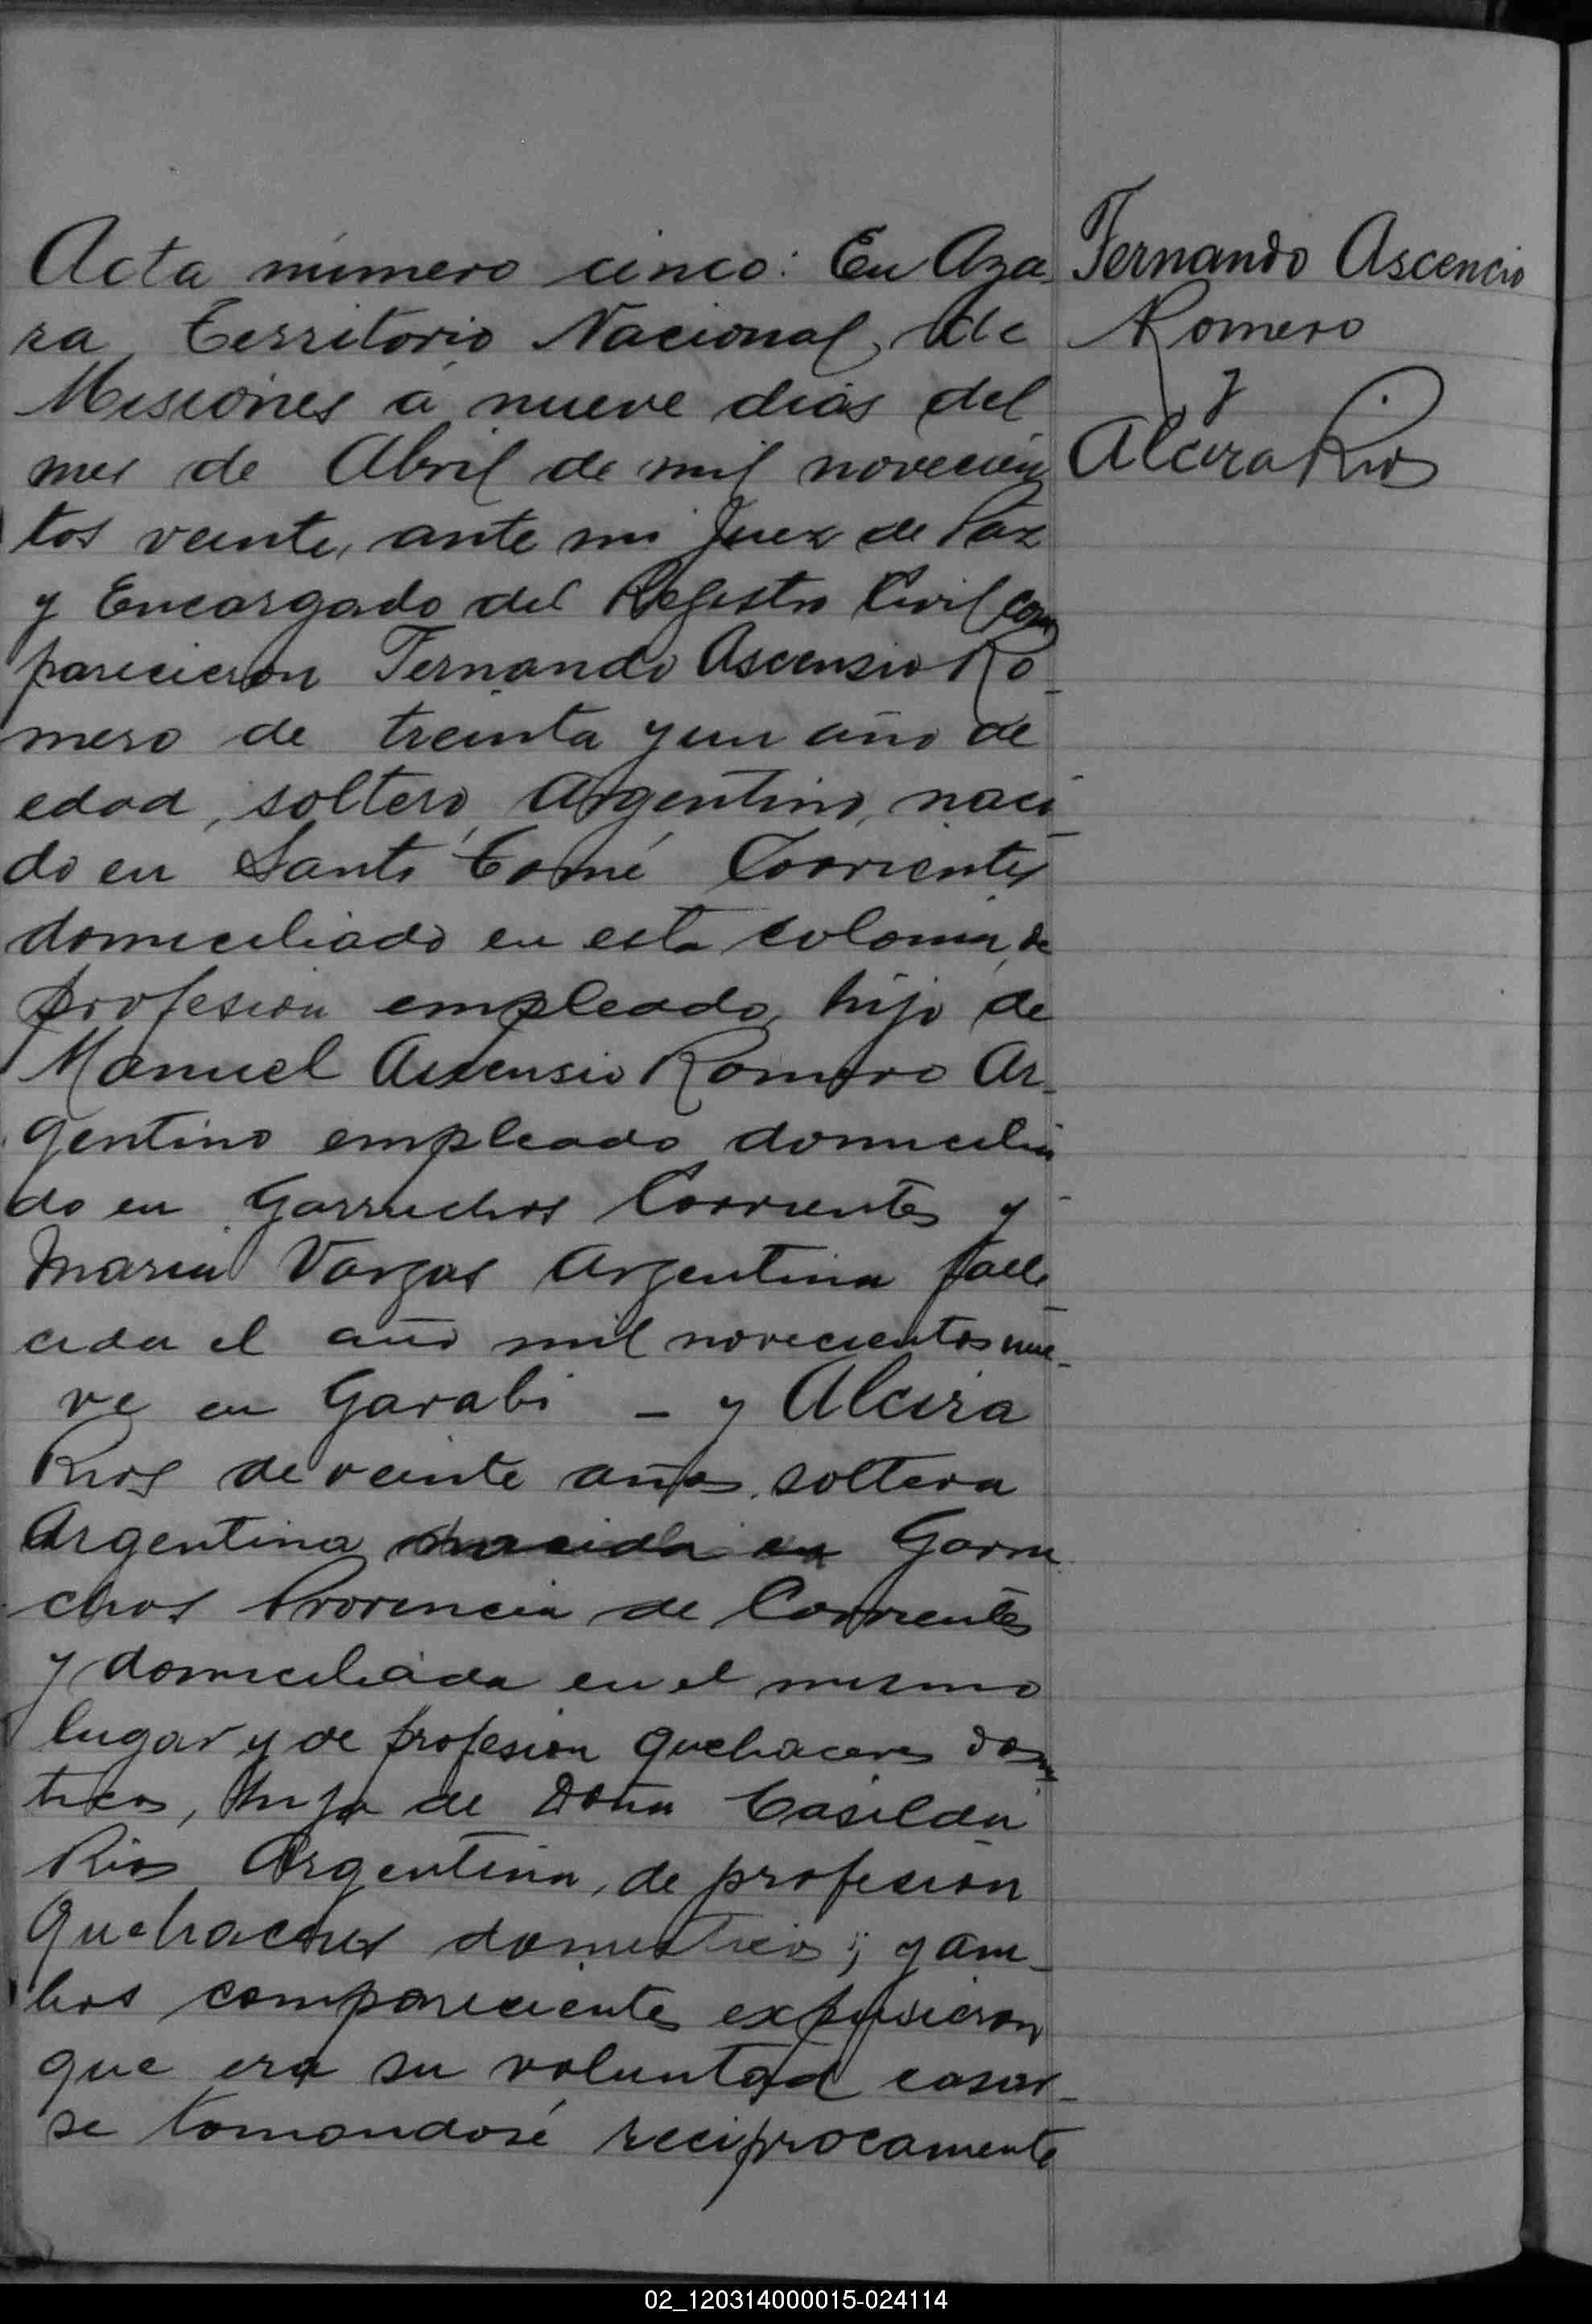 Acta número cinco: En Aza-
ra, Territorio Nacional, de
Misiones á nueve dias del
mes de Abril de mil novecien
tos veinte, ante mi Juez de Paz
y Encargado del Registro Civil com
parecieron Fernando Ascensio Ro-
mero de treinta y un año de
edad, soltero, Argentino, naci-
do en Santo Tomé Corrientes
domiciliado en esta colonia, de
profesion empleado, hijo de
Manuel Ascensio Romero Ar-
gentino empleado domicilia
do en Garruchos Corrientes y
Maria Vargas Argentina falle-
cida el año mil novecientos nue-
ve en Garabi - y Alcira
Rios de veinte años, soltera
Argentina nacida en Garru
chos Provincia de Corrientes
y domiciliada en el mismo
lugar y de profesion quehaceres dom
ticos, hija de Doña Casilda
Rios Argentina, de profesion
Quehaceres domesticos; y am-
bos compareciente expusieron
que era su voluntad casar-
se tomandosé reciprocamente
Fernando Ascencio
Romero
y
Alcira Rios
02_120314000015-024114